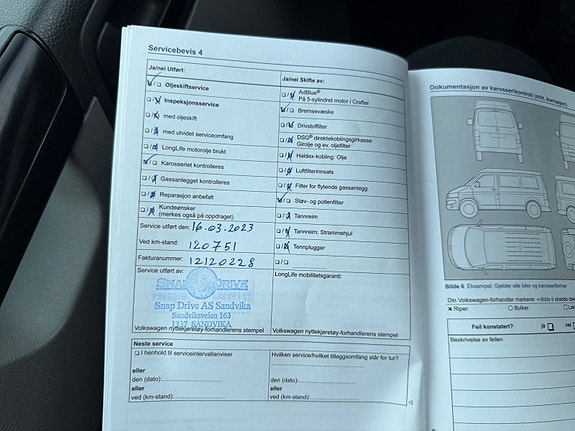 Servicebevis 4
Ja/nei Utført:
Oljeskiftservice
Inspeksjonsservice
med oljeskift
med utvidet serviceomfang
LongLife motorolje brukt
Karosseriet kontrolleres
Gassanlegget kontrolleres
Reparasjon anbefalt
Kundeønsker
(merkes også på oppdraget)
Service utført den: 16.03.2023
Ved km-stand: 120751
Fakturanummer: 12120228
Service utført av:
SNAP DRIVE
Snap Drive AS Sandvika
Sandviksveien 163
1337 SANDVIKA
Volkswagen nyttekjøretøy-forhandlerens stempel
Ja/nei Skifte av:
AdBlue®
På 5-sylindret motor i Crafter
Bremsevæske
Drivstoffilter
DSG® direktekoblingsgirkasse:
Girolje og ev. oljefilter
Haldex-kobling: Olje
Luftfilterinnsats
Filter for flytende gassanlegg
Støv- og pollenfilter
Tannreim
Tannreim: Strammehjul
Tennplugger
LongLife mobilitetsgaranti:
Volkswagen nyttekjøretøy-forhandlerens stempel
Neste service
I henhold til serviceintervallanviser
eller
den (dato):
eller
ved (km-stand):
Hvilken service/hvilket tilleggsomfang står for tur?
den (dato):
eller
ved (km-stand):
Dokumentasjon av karosserikontroll
Bilde 6 Eksempel: Gjelder alle biler og karosseriformer
Din Volkswagen-forhandler markerer
Riper
Bulker
Feil konstatert? ja
Beskrivelse av feilen